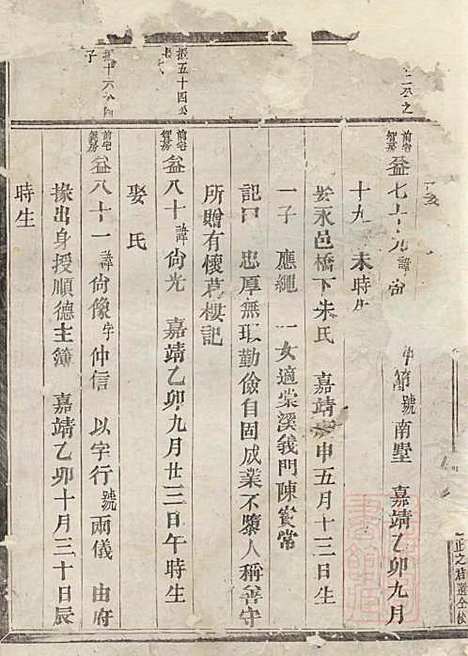 二公之
前宅智房 益七十九 諱尚 字仲節 號南墅 嘉靖乙卯九月
十九 未時生
娶永邑橋下朱氏 嘉靖 申五月十三日生
一子 應繩 一女適棠溪義門陳賓常
記曰 忠厚無瑕勤儉自固成業不墜人稱善守
所贈有懷葛樓記
振五十四公
前宅智房 益八十 諱尚光 嘉靖乙卯九月廿三日午時生
娶氏
振十六公
子
前宅智房 益八十一 諱尚像 字仲信 以字行 號兩儀 由府
掾出身授順德主簿 嘉靖乙卯十月三十日辰
時生